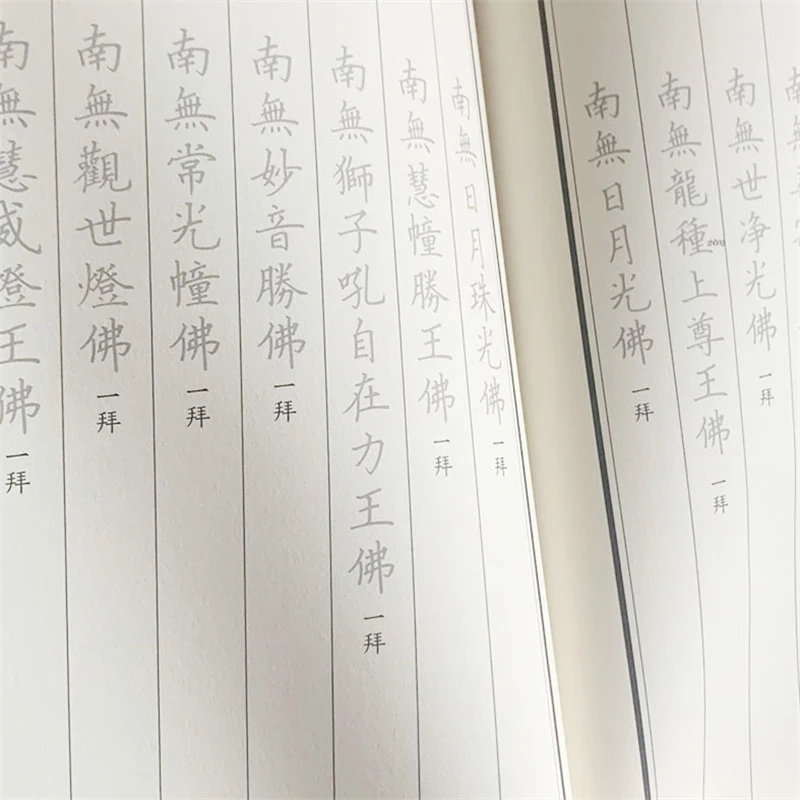 南無世净光佛 一拜
南無龍種上尊王佛 一拜
南無日月光佛 一拜
南無日月珠光佛 一拜
南無慧幢勝王佛 一拜
南無獅子吼自在力王佛 一拜
南無妙音勝佛 一拜
南無常光幢佛 一拜
南無觀世燈佛 一拜
南無慧威燈王佛 一拜